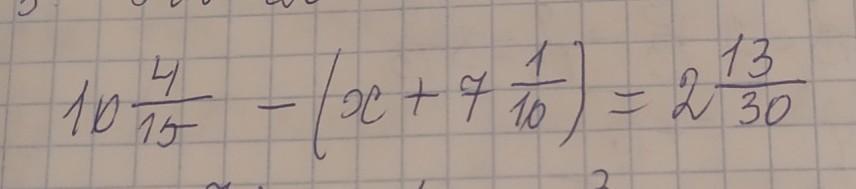 10 4/15 - (x + 7 1/10) = 2 13/30